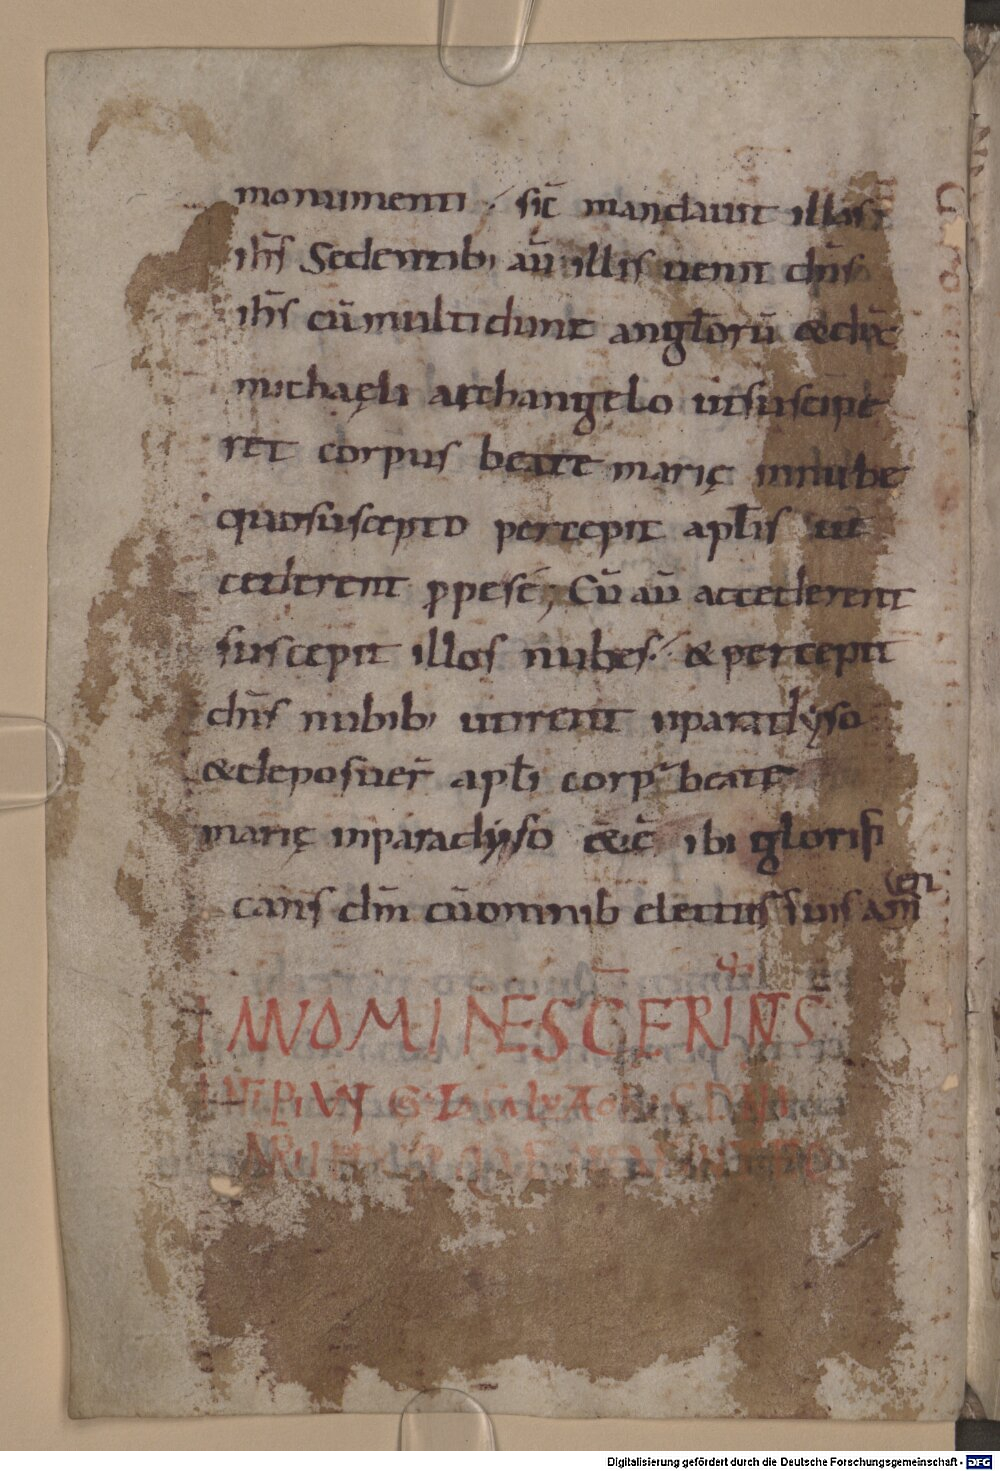 monumenti . sic̄ mandauit illas ;
ih̄s Sedentib; aū illis uenit dn̄s
ih̄s cū multidune angl̄orū & dix̄
michaęli archangelo ut suscipe
ret corpus beate marię in nube
quo suscepto percepit apl̄is ut
cederent p̄pe se ; Cū aū accederent
suscepit illos nubes . & percepit
dn̄s nubib; ut irent in paradyso
& deposuer̄ apl̄i corp' beate
marię in paradyso & ē ibi glorifi
cans dm̄ cū omnib electis suis am̄
en
IN NOMINE SC̄E TRINITATIS
Digitalisierung gefördert durch die Deutsche Forschungsgemeinschaft - DFG